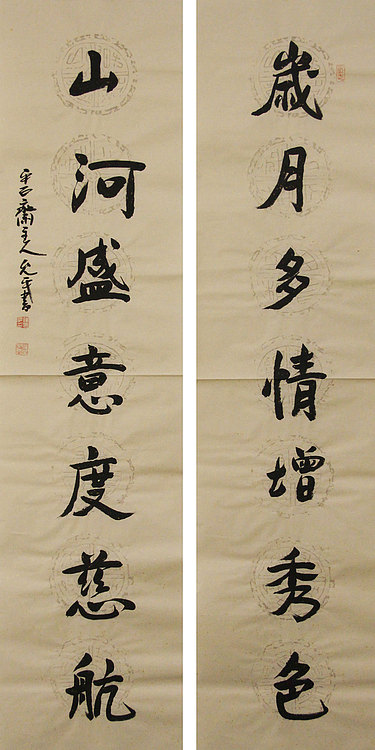 歲月多情增秀色
山河盛意度慈航
平正齋主人允平書